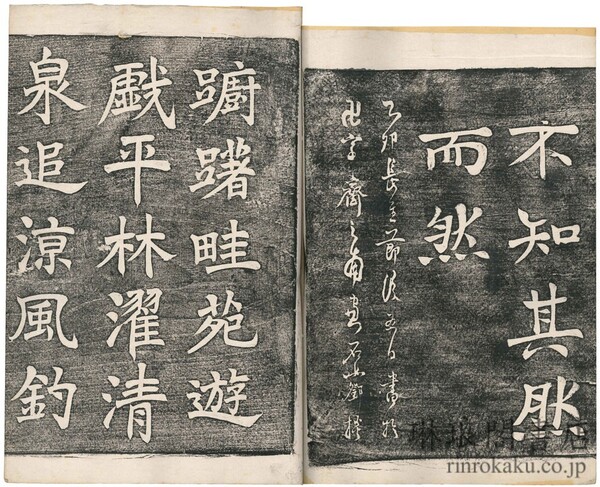 不知其然
而然
乙卯長至節後五日書於
齋之南窗石如鄧琰
躕躇畦苑遊
戲平林濯清
泉追涼風釣
琳琅閣書店
rinrokaku.co.jp